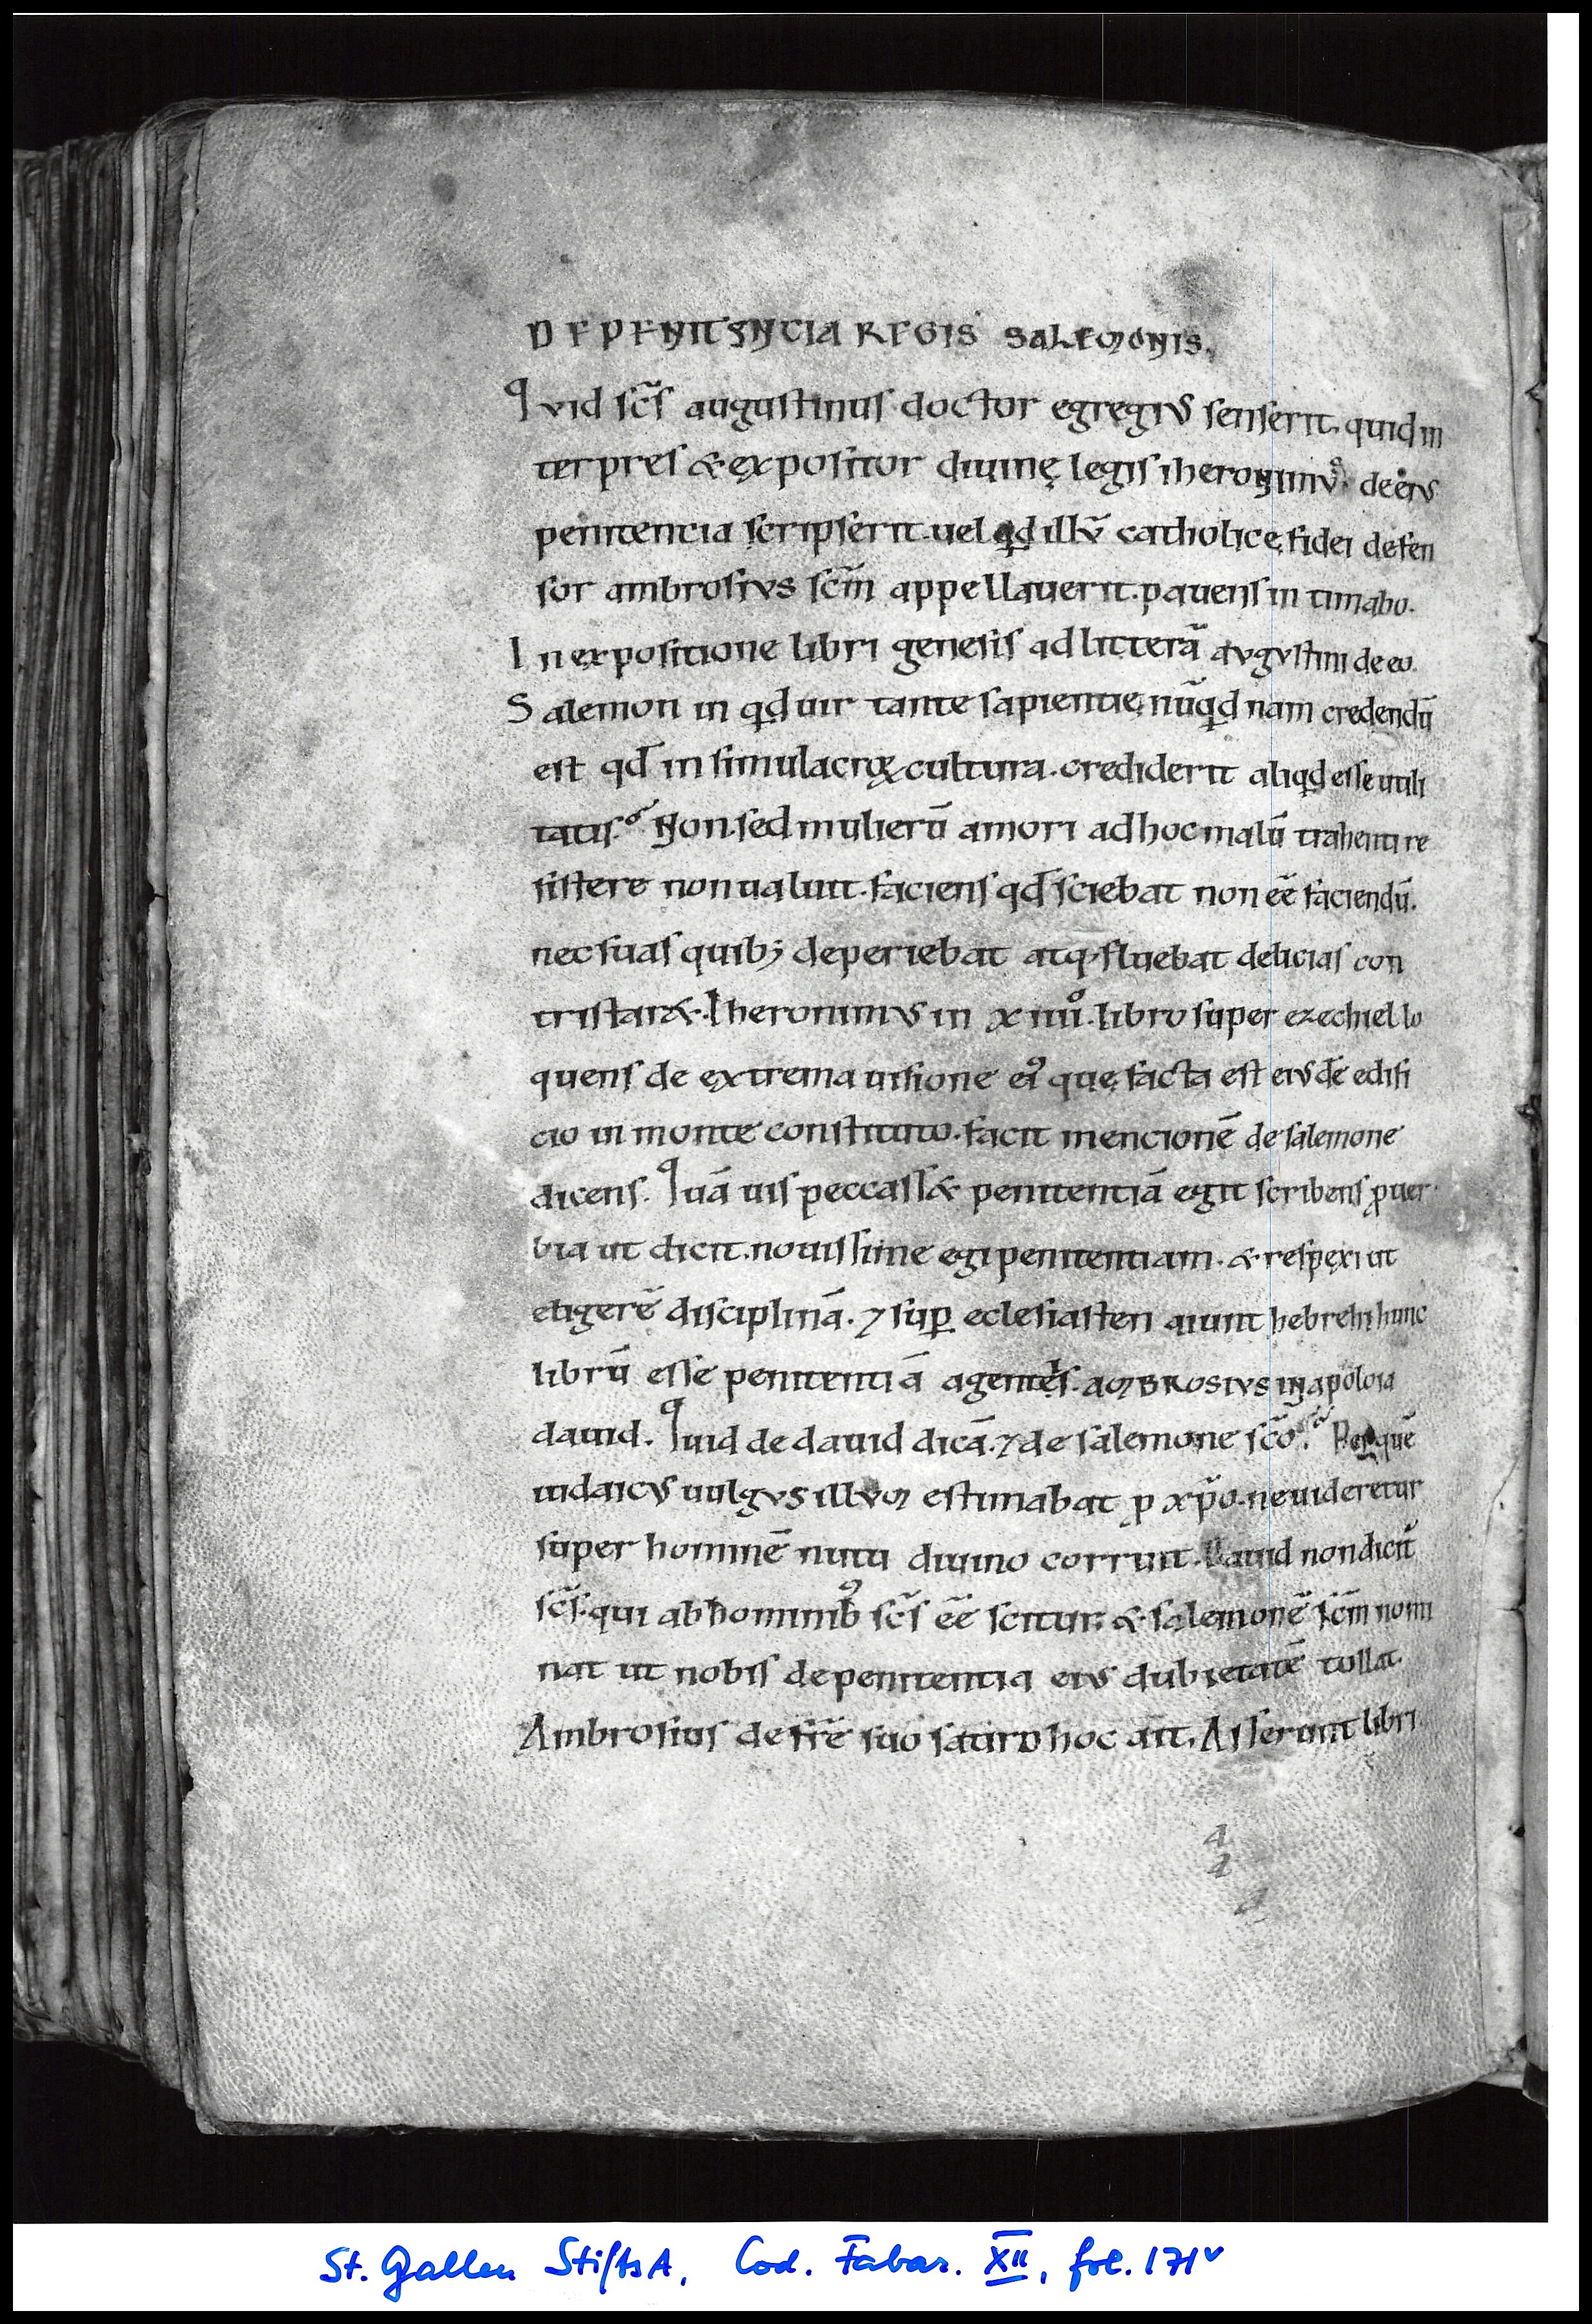 DE PENITENCIA REGIS SALEMONIS.
Qvid sc̄s augustinus doctor egregiꝰ senserit. quid in
terpres & ęxpositor diuinę legis iheronimꝰ. de eiꝰ
penitencia scripserit. uel qd illū catholicę fidei defen
sor ambrosivs sc̄m appellauerit. pauens intimabo.
In expositione libri genesis ad litterā avgvstini de eo.
Salemon in qd uir tante sapientię. nūqd nam credendū
est qđ in simulacroꝝ cultura. crediderit aliqd esse utili
tatis. Non. sed mulierū amori ad hoc malū trahenti re
sistere non ualuit. faciens qđ sciebat non eē faciendū.
nec suas quibꝫ deperiebat atqꝫ fluebat delicias con
tristar&. Iheronimꝰ in xiiiiº. libro super ezechiel lo
quens de ęxtrema uisione eiꝰ quę facta est eivdē edifi
cio in monte constituto. facit mencionē de salemone
dicens. Quā uis peccass& penitentiā egit scribens ꝓuer
bia ut dicit. nouissime egi penitentiam. & respęxi ut
eligerē disciplinā. ⁊ suꝑ eclesiasten aiunt hebrehi hunc
librū esse penitentiā agentis. AMBROSIVS IN apoloia
dauid. Quid de dauid dicā. ⁊ de salemone sc̄o. Per quē
iudaicꝰ uulgvs illvm estimabat ꝓ xp̄o. ne uideretur
super hominē nutu diuino corruit. Dauid non dicit̄
sc̄s. qui ab hominibꝰ sc̄s eē scitur. & salemonē sc̄m nomi
nat ut nobis de penitentia eiꝰ dubietatē tollat.
Ambrosius de fr̄e suo satiro hoc ait. Asserunt libri
St. Gallen StiftsA, Cod. Fabar. XII, fol. 171v